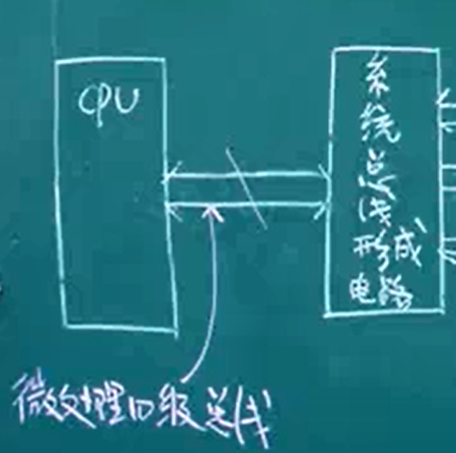 CPU
系统总线形成电路
微处理器级总线